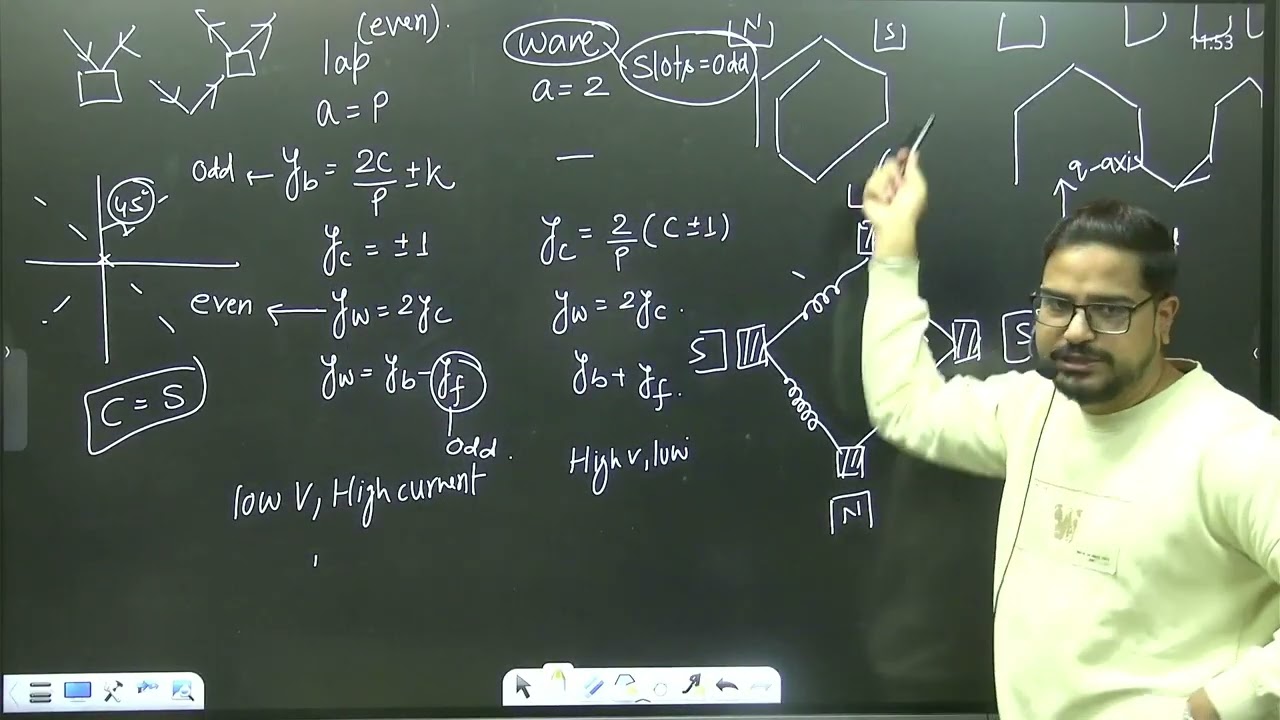 (even).
lap
a = P
wave
Slots = odd
a = 2
N
S
11:53
odd ← y_b = 2C/P ± K
—
45°
y_c = ± 1
y_c = 2/P (C ± 1)
q-axis
even ← y_w = 2y_c
y_w = 2y_c.
y_w = y_b - y_f
y_b + y_f.
S
S
C = S
odd.
High V, low
low V, High current
N